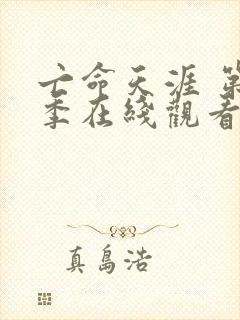 亡命天涯 第
季在綫觀看
真島浩